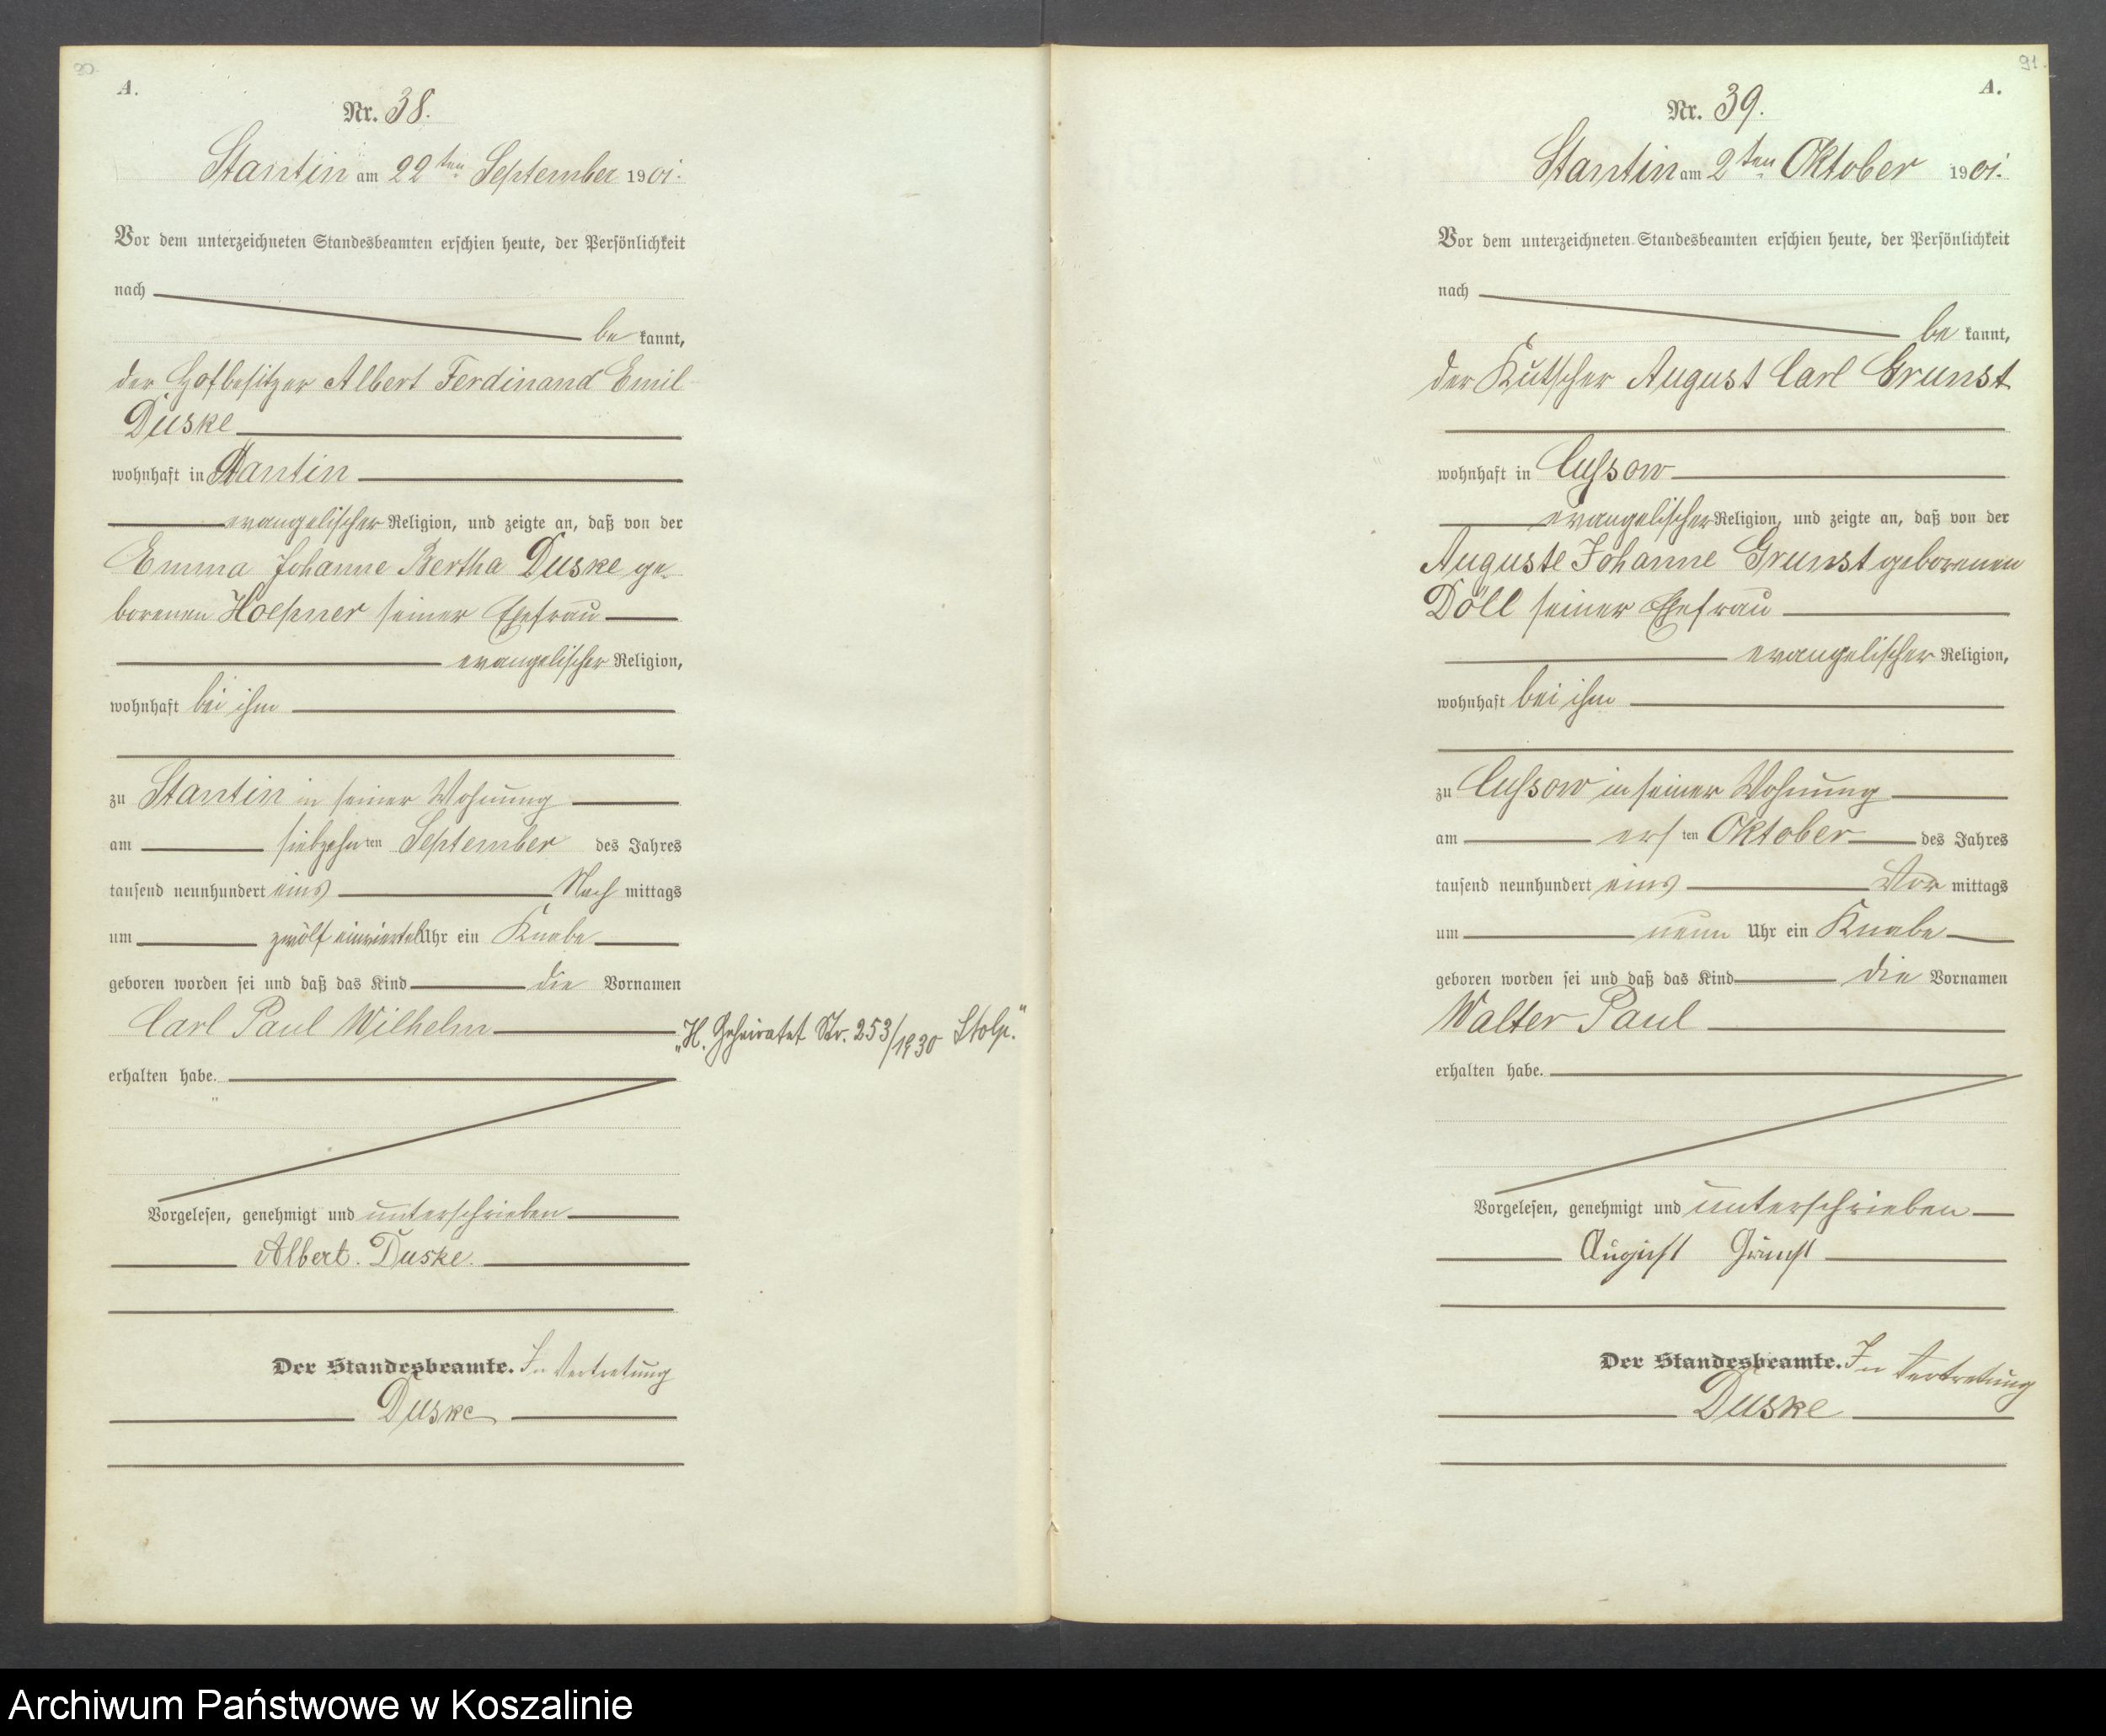 90.
A.
Nr. 38.
Stantin am 22ten September 1901.
Vor dem unterzeichneten Standesbeamten erschien heute, der Persönlichkeit
nach
be kannt,
der Hofbesitzer Albert Ferdinand Emil
Duske
wohnhaft in Stantin
evangelischer Religion, und zeigte an, daß von der
Emma Johanne Bertha Duske ge-
borenen Hoepner seiner Ehefrau
evangelischer Religion,
wohnhaft bei ihm
zu Stantin in seiner Wohnung
am siebzehnten September des Jahres
tausend neunhundert eins Nach mittags
um zwölf einviertel Uhr ein Knabe
geboren worden sei und daß das Kind die Vornamen
Carl Paul Wilhelm
„H. Geheiratet Nr. 253/1930 Stolp."
erhalten habe.
Vorgelesen, genehmigt und unterschrieben
Albert. Duske.
Der Standesbeamte. In Vertretung
Duske
91.
A.
Nr. 39.
Stantin am 2ten Oktober 1901.
Vor dem unterzeichneten Standesbeamten erschien heute, der Persönlichkeit
nach
be kannt,
der Kutscher August Carl Grunst
wohnhaft in Cussow
evangelischer Religion, und zeigte an, daß von der
Auguste Johanne Grunst geborenen
Döll seiner Ehefrau
evangelischer Religion,
wohnhaft bei ihm
zu Cussow in seiner Wohnung
am ersten Oktober des Jahres
tausend neunhundert eins Vor mittags
um neun Uhr ein Knabe
geboren worden sei und daß das Kind die Vornamen
Walter Paul
erhalten habe.
Vorgelesen, genehmigt und unterschrieben
August Grunst
Der Standesbeamte. In Vertretung
Duske
Archiwum Państwowe w Koszalinie